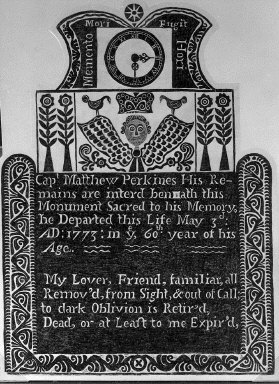 Memento Mori Fugit Hora
Cap.t Matthew Perkines His Re-
mains are interd beneath this
Monument Sacred to his Memory,
he Departed this Life May 3.d
AD: 1773: in ye 60th year of his
Age.
My Lover, Friend, familiar, all
Remov'd, from Sight, & out of Call;
to dark Oblivion is Retir'd,
Dead, or at Least to me Expir'd,